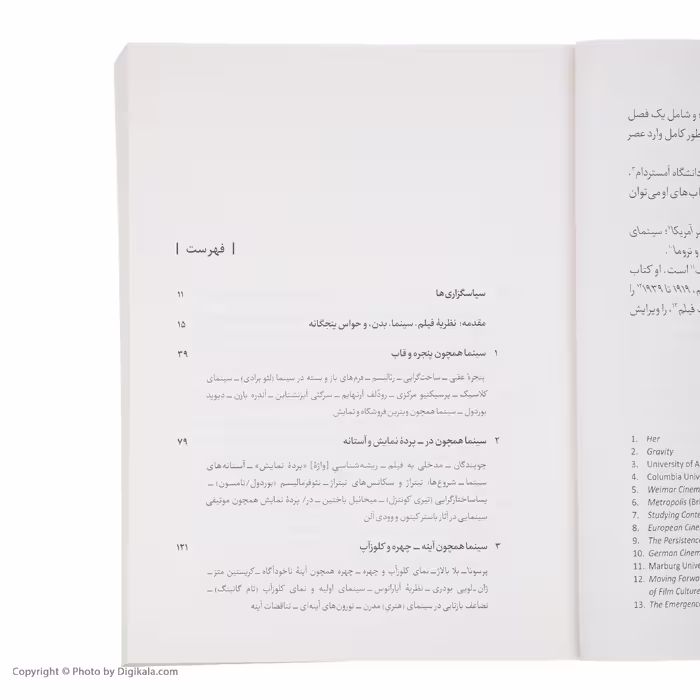 | فهرست |
سپاسگزاری‌ها ۱۱
مقدمه: نظریهٔ فیلم، سینما، بدن، و حواس پنجگانه ۱۵
۱ سینما همچون پنجره و قاب ۳۹
پنجرهٔ عقبی ــ ساخت‌گرایی ــ رئالیسم ــ فرم‌های باز و بسته در سینما (لئو برادی) ــ سینمای
کلاسیک ــ پرسپکتیو مرکزی ــ رودُلف آرنهایم ــ سرگئی آیزنشتاین ــ آندره بازن ــ دیوید
بوردول ــ سینما همچون ویترین فروشگاه و نمایش
۲ سینما همچون در ــ پردهٔ نمایش و آستانه ۷۹
جویندگان ــ مدخلی به فیلم ــ ریشه‌شناسیِ [واژهٔ] «پردهٔ نمایش» ــ آستانه‌های
سینما ــ شروع‌ها: تیتراژ و سکانس‌های تیتراژ ــ نئوفرمالیسم (بوردول/تامسون) ــ
پساساختارگرایی (تیری کونتزل) ــ میخائیل باختین ــ در/ پردهٔ نمایش همچون موتیفی
سینمایی در آثار باستر کیتون و وودی آلن
۳ سینما همچون آینه ــ چهره و کلوزآپ ۱۲۱
پرسونا ــ بلا بالاژ ــ نمای کلوزآپ و چهره ــ چهره همچون آینهٔ ناخودآگاه ــ کریستین متز ــ
ژان ـ لویی بودری ــ نظریهٔ آپاراتوس ــ سینمای اولیه و نمای کلوزآپ (تام گانینگ) ــ
تضاعف بازتابی در سینمای (هنریِ) مدرن ــ نورون‌های آینه‌ای ــ تناقضات آینه
و شامل یک فصل
طور کامل وارد عصر
دانشگاه آمستردام
اب‌های او می‌توان
آمریکا؛ سینمای
و تروما
است. او کتاب
۱۹۱۹ تا ۱۹۳۹ را
فیلم، را ویرایش
1. Her
2. Gravity
3. University of A
4. Columbia Univ
5. Weimar Cinem
6. Metropolis (Bri
7. Studying Conte
8. European Cine
9. The Persistence
10. German Cinem
11. Marburg Unive
12. Moving Forwa
of Film Culture
13. The Emergence
Copyright © Photo by Digikala.com